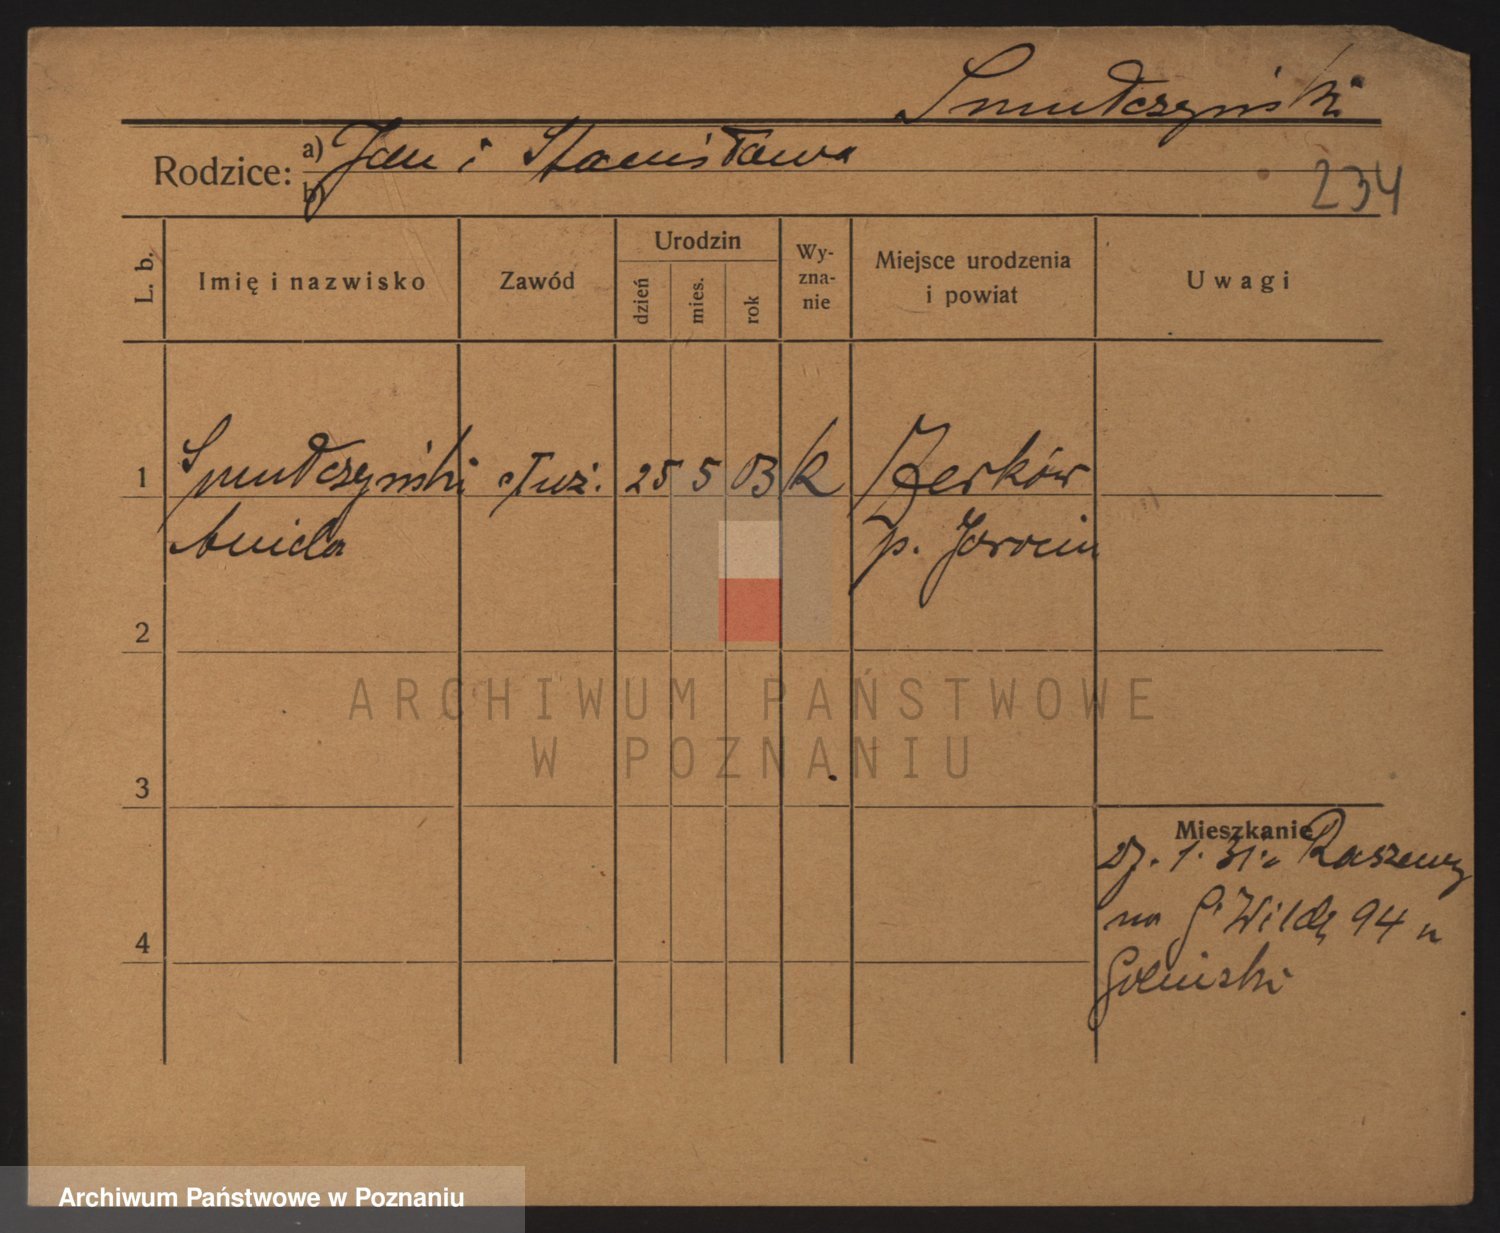 Smulczyński
Rodzice: a) Jan i Stanisława
b)
234
L. b.
Imię i nazwisko
Zawód
Urodzin
dzień
mies.
rok
Wy-
zna-
nie
Miejsce urodzenia
i powiat
Uwagi
1 Smulczyński służ. 25 5 03 k Żerków
Aniela p. Jarocin
2
3
4
Mieszkanie
27. 1. 31. Raszewy
na G. Wildę 94 u
ARCHIWUM PAŃSTWOWE
W POZNANIU
Archiwum Państwowe w Poznaniu